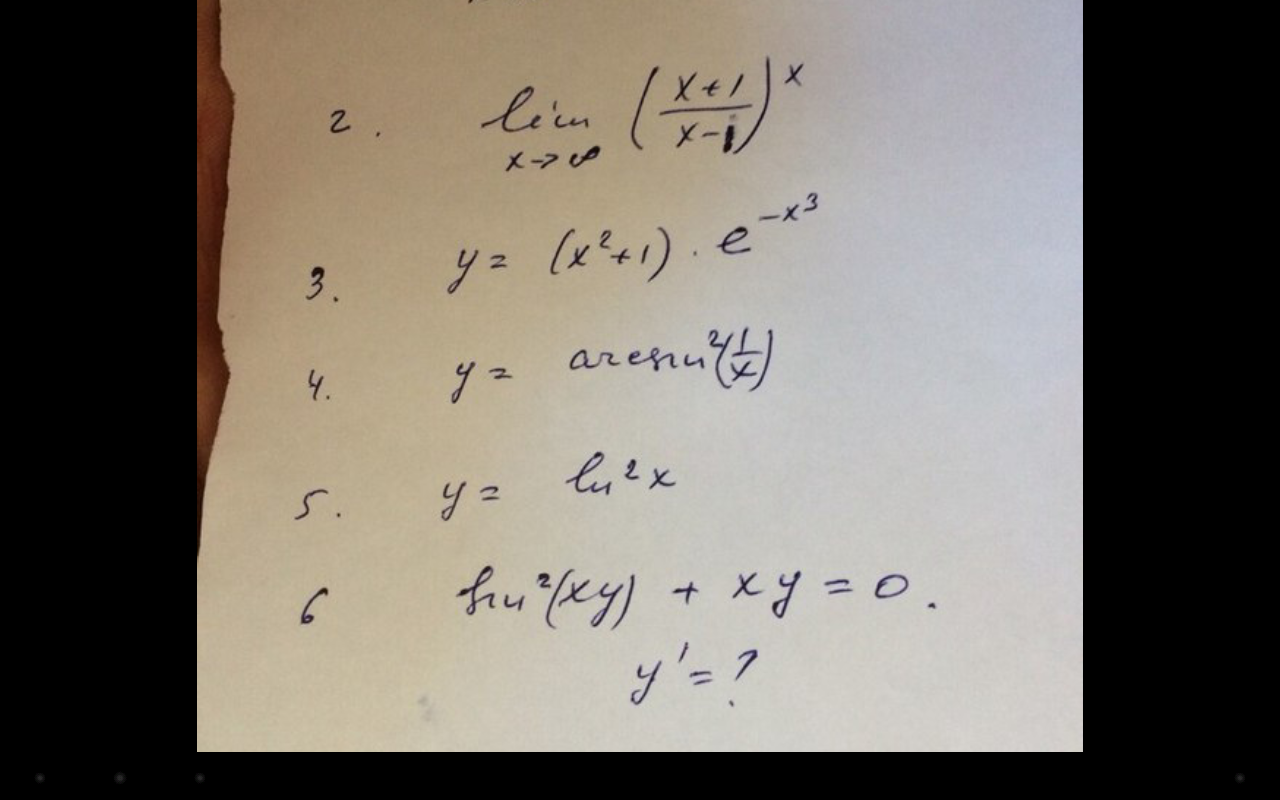 2. lim x→∞ ((x+1)/(x-1))^x
3. y = (x²+1) · e^(-x³)
4. y = arcsin²(1/x)
5. y = ln²x
6 sin²(xy) + xy = 0.
y' = ?